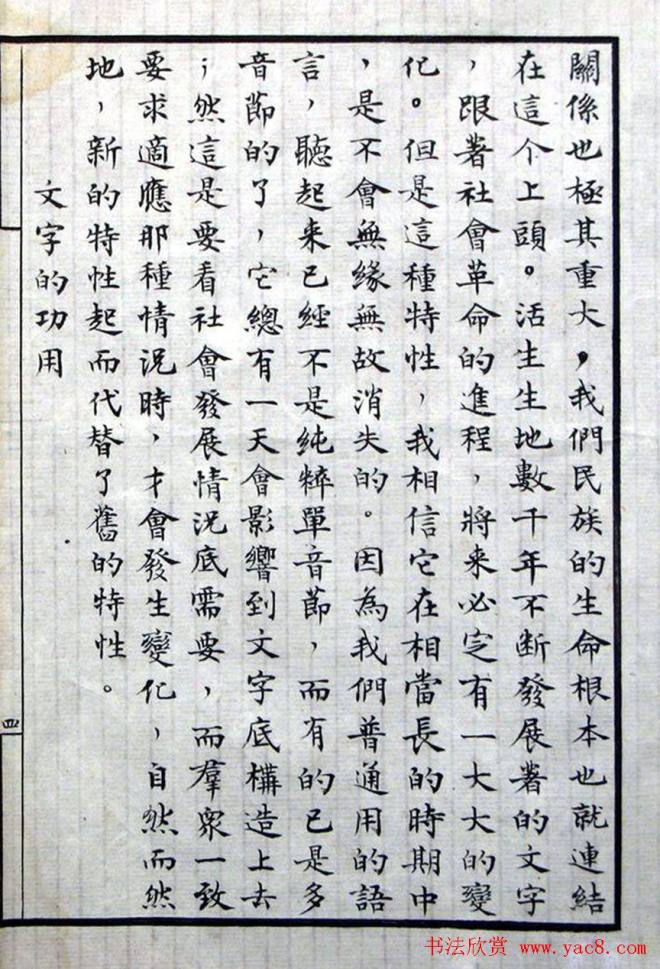 關係也極其重大，我們民族的生命根本也就連結
在這个上頭。活生生地數千年不斷發展著的文字
，跟著社會革命的進程，將来必定有一大大的變
化。但是這種特性，我相信它在相當長的時期中
，是不會無緣無故消失的。因為我們普通用的語
言，聽起来已經不是純粹單音節，而有的已是多
音節的了，它總有一天會影響到文字底構造上去
；然這是要看社會發展情况底需要，而羣衆一致
要求適應那種情况時，才會發生變化，自然而然
地，新的特性起而代替了舊的特性。
文字的功用
四
书法欣赏 www.yac8.com